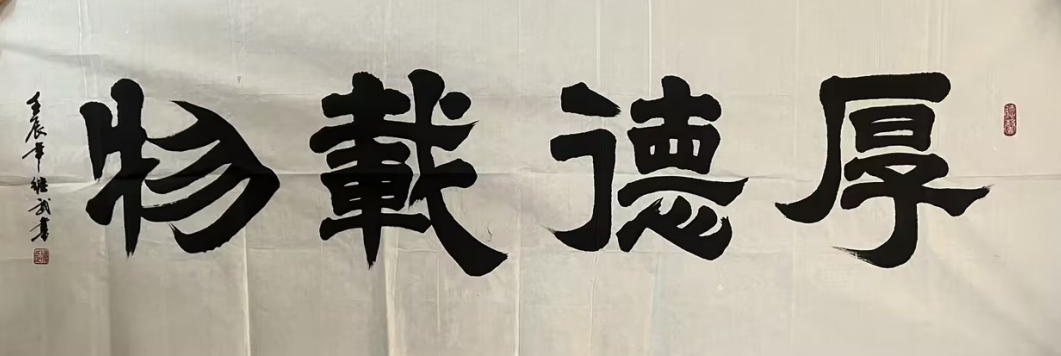 厚德載物
壬辰年继武書